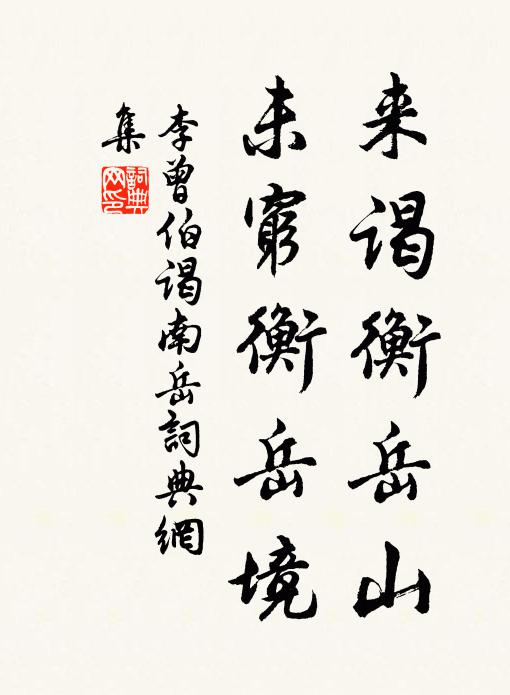 来谒衡岳山
未穷衡岳境
李曾伯谒南岳詞典網
集
詞典网印